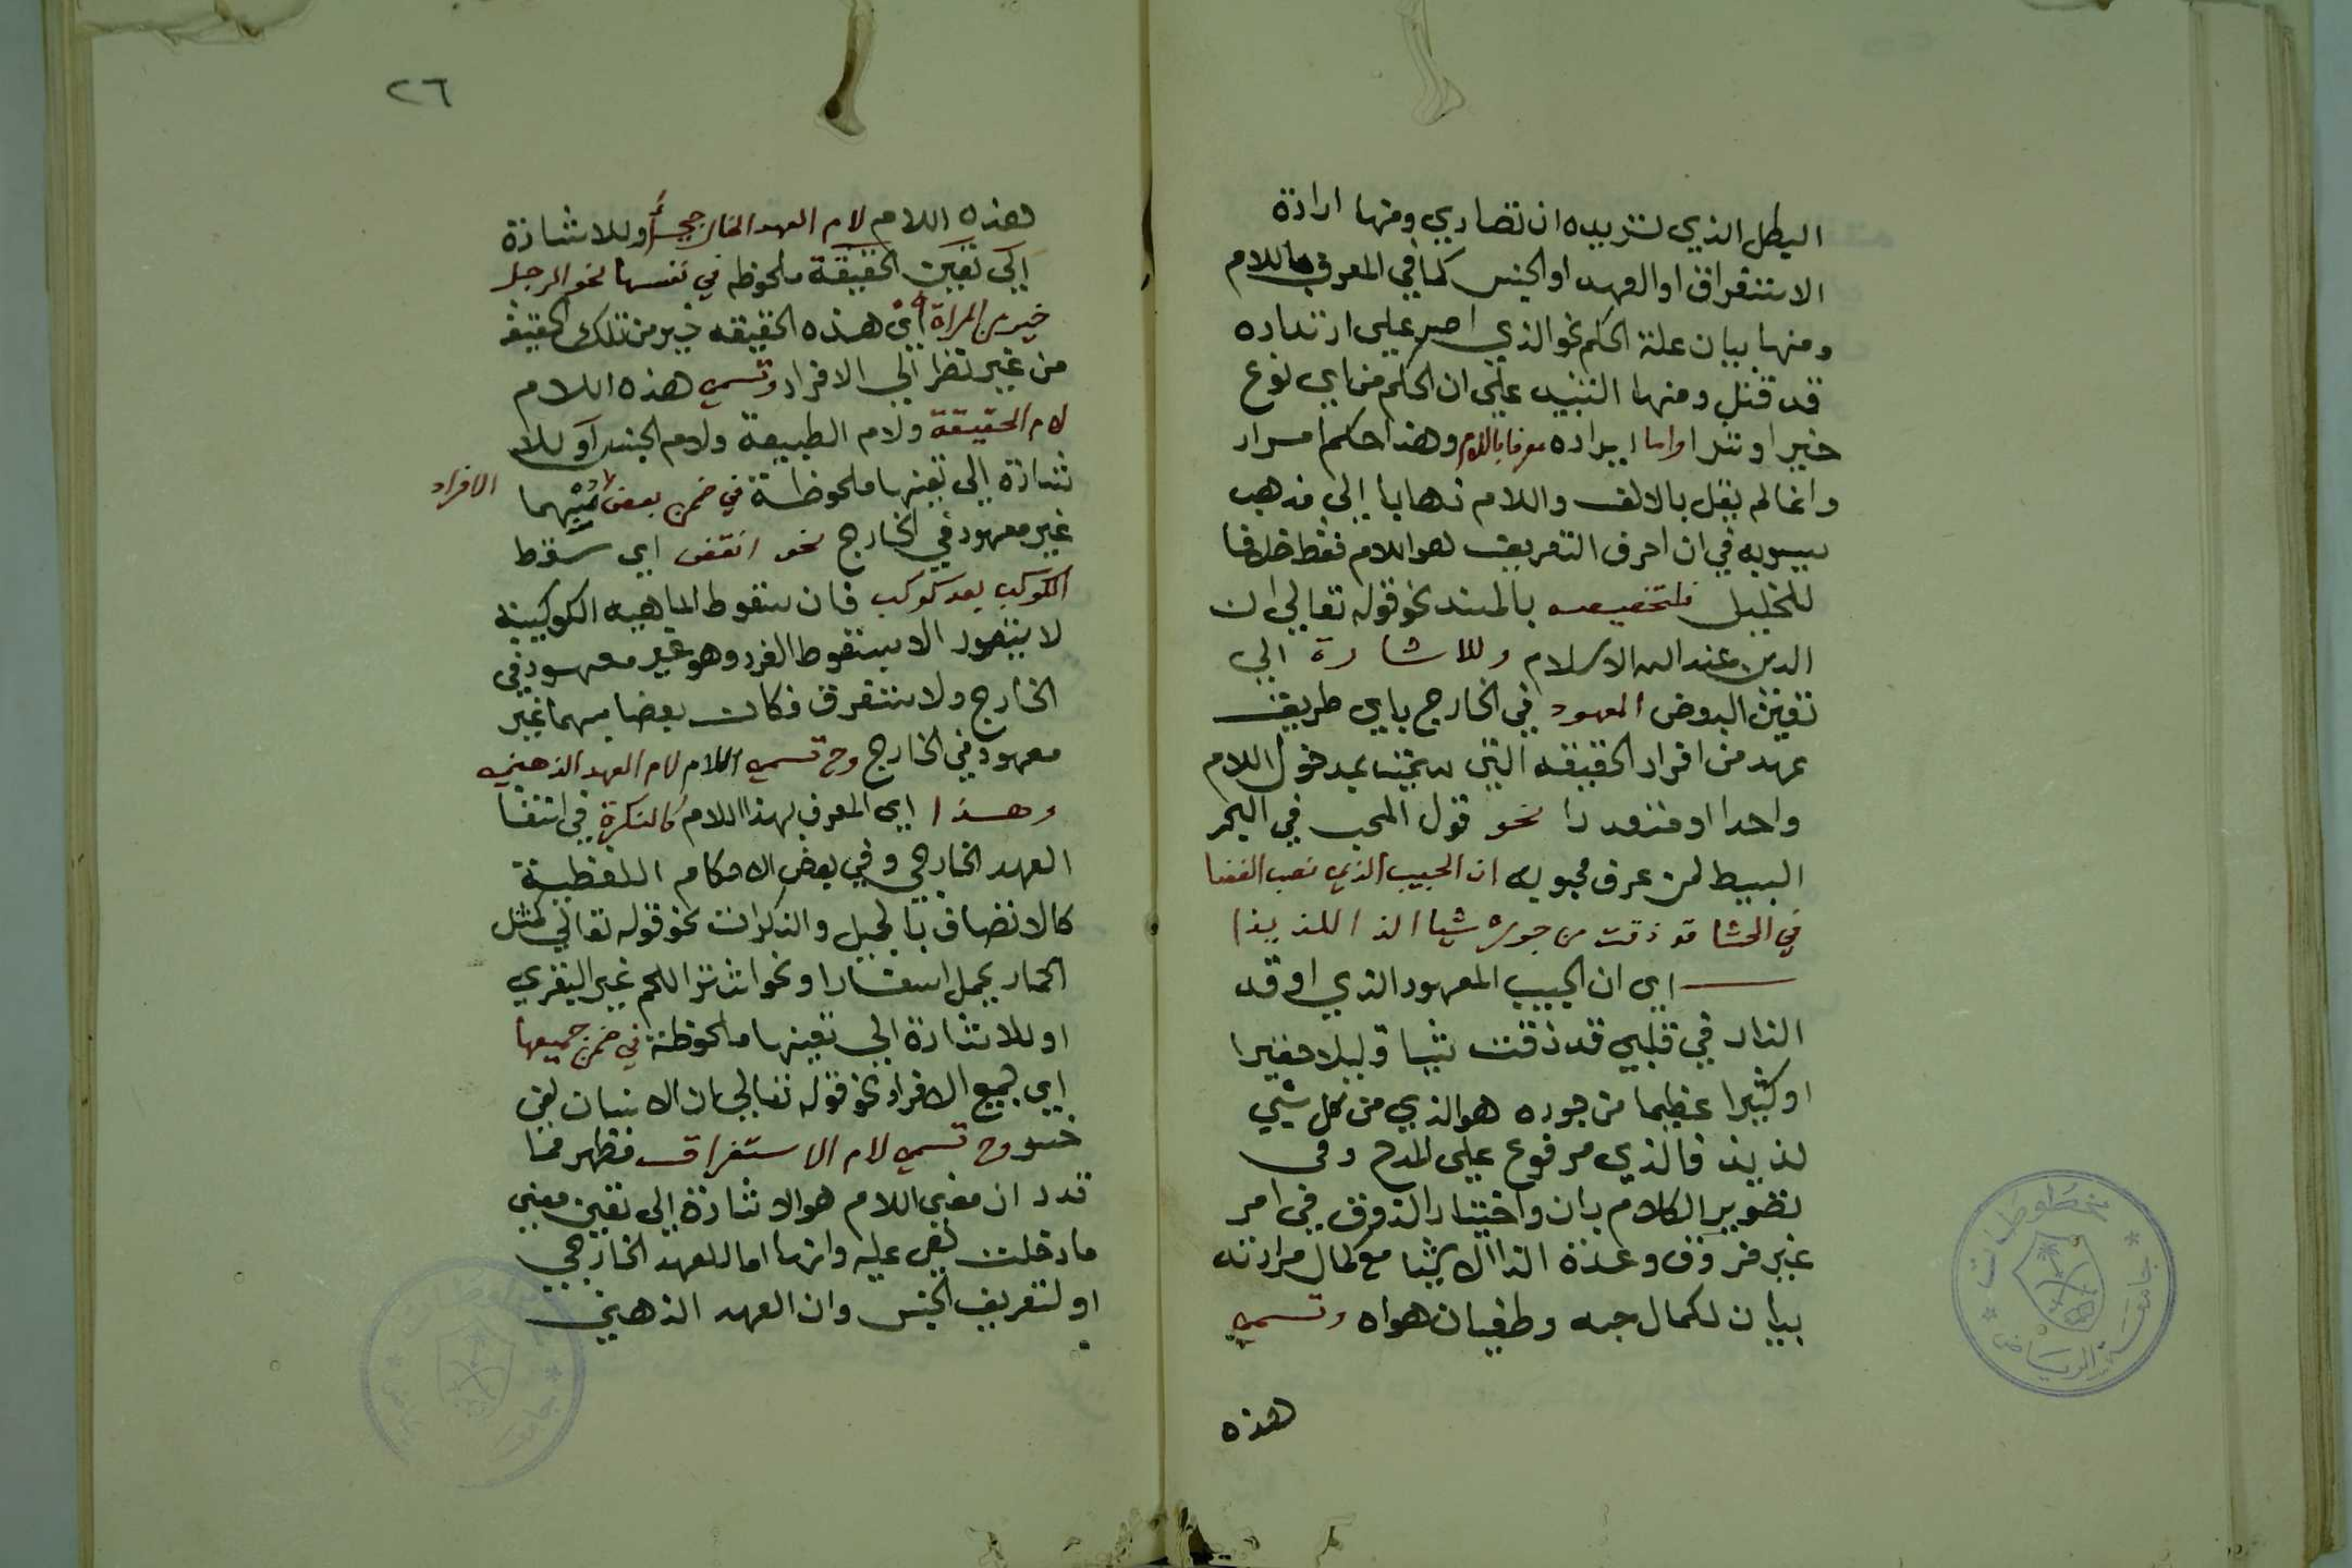 البطل الذي تريده ان تصادي ومنها ارادة
الاستغراق او العهد او الجنس كما في المعرف باللام
ومنها بيان علة الحكم نحو الذي اصر على ارتداده
قد قتل ومنها التنبيه على ان الحكم من اي نوع
خيرا او شرا واما ايراده معرفا باللام وهذا حكم
وانما لم يقل بالالف واللام ذهابا الى مذهب
سيبويه في ان احرف التعريف هو اللام فقط خلافا
للخليل فلتخصيصه بالمسند نحو قوله تعالى ان
الدين عند الله الاسلام وللاشارة الى
تعيين البعض المعهود في الخارج باي طريق
عهد من افراد الحقيقه التي بدخول اللام
واحدا او متعددا نحو قول المحب في البحر
البسيط لمن عرف محبوبه ان الحبيب الذي نصب الغضا
في الحشا قد ذقت من جوره شيا الذ اللذيذا
اي ان الحبيب المعهود الذي اوقد
النار في قلبي قد ذقت شيا قليلا حقيرا
او كثيرا عظيما من جوره هو الذي من كل شيي
لذيذ فالذي مرفوع على المدح وفي
تصوير الكلام بان واختيار الذوق في امر
غير مذوق وعده الذ الاشيا مع كمال مرارته
بيان لكمال حبه وطغيان هواه وتسمى
هذه
٢٦
هذه اللام لام العهد الخارجي او للاشارة
الى تعيين الحقيقة ملحوظه في نفسها نحو الرجل
خير من المراة اي هذه الحقيقه خير من تلك الحقيقه
من غير نظر الى الافراد وتسمى هذه اللام
لام الحقيقة ولام الطبيعة ولام الجنس او للا
شارة الى تعينها ملحوظة في ضمن بعض الافراد
غير معهود في الخارج نحو انقض اي سقط
الكوكب بعد كوكب فان سقوط الماهيه الكوكبية
لا يتصور الا بسقوط الفرد وهو غير معهود في
الخارج ولا مستغرق فكان بعضا مبهما غير
معهود في الخارج وح تسمى اللام لام العهد الذهني
وهذا اي المعرف بهذا اللام كالنكرة في انتفا
العهد الخارجي وفي بعض الاحكام اللفظية
كالاتصاف بالجمل والنكرات نحو قوله تعالى كمثل
الحمار يحمل اسفارا ونحو اشتر اللحم غير البقري
او للاشارة الى تعينها ملحوظة في ضمن جميعها
اي جميع الافراد نحو قوله تعالى ان الانسان لفي
خسر وح تسمى لام الاستغراق فظهر مما
قدر ان معنى اللام هو الاشارة الى تعين معنى
ما دخلت هي عليه وانها اما للعهد الخارجي
او لتعريف الجنس وان العهد الذهني